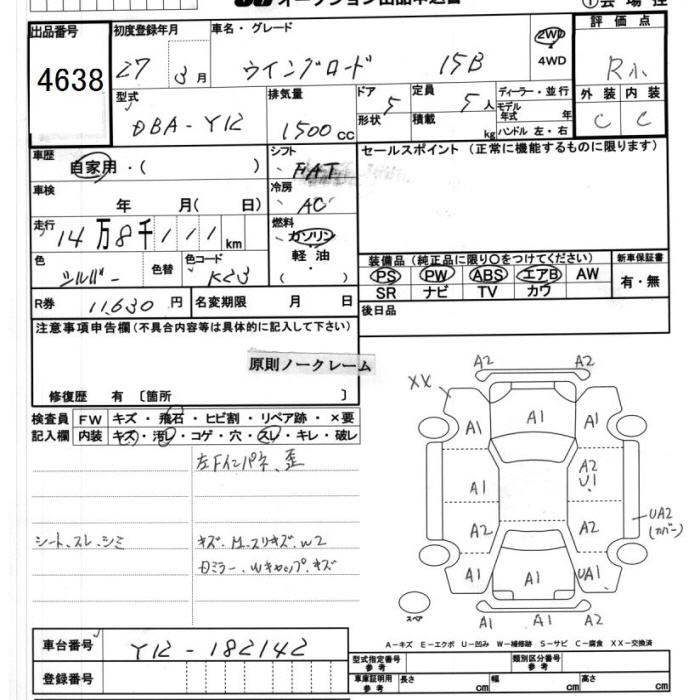 オークション出品申込書
①会場控
出品番号
4638
初度登録年月
27 3月
車名・グレード
ウイングロード 15B
2WD
4WD
評価点
R小
外装 内装
C C
型式
DBA-Y12
排気量
1500cc
ドア 5
形状
定員 5人
積載 kg
ディーラー・並行
モデル年式 年
ハンドル 左・右
車歴
自家用・( )
シフト
FAT
セールスポイント (正常に機能するものに限ります)
車検
年 月( 日)
冷房
AC
走行
14万8千111km
燃料
ガソリン
軽油
・
( )
色
シルバー
色替
色コード
K23
装備品 (純正品に限り〇をつけてください)
PS PW ABS エアB AW
SR ナビ TV カワ
新車保証書
有・無
R券 11,630円
名変期限 月 日
後日品
注意事項申告欄(不具合内容等は具体的に記入して下さい)
原則ノークレーム
修復歴 有 〔箇所 〕
検査員 FW キズ・飛石・ヒビ割・リペア跡・×要
記入欄 内装 キズ・汚レ・コゲ・穴・スレ・キレ・破レ
左Fインパネ、歪
シート、スレ、シミ
キズ・M.スリキズ.W2
Dミラー、Wキャップ、キズ
A2 A2
XX
A1 A1 A1
A2
A1 U1
UA2
(カバー)
A2 A2
A1 A1 UA1
A1 A1 A2
スペア
A-キズ E-エクボ U-凹み W-補修跡 S-サビ C-腐食 XX-交換済
車台番号 Y12-182142
登録番号
型式指定番号
参考
類別区分番号
参考
車庫証明用
参考
長さ cm 幅 cm 高さ cm